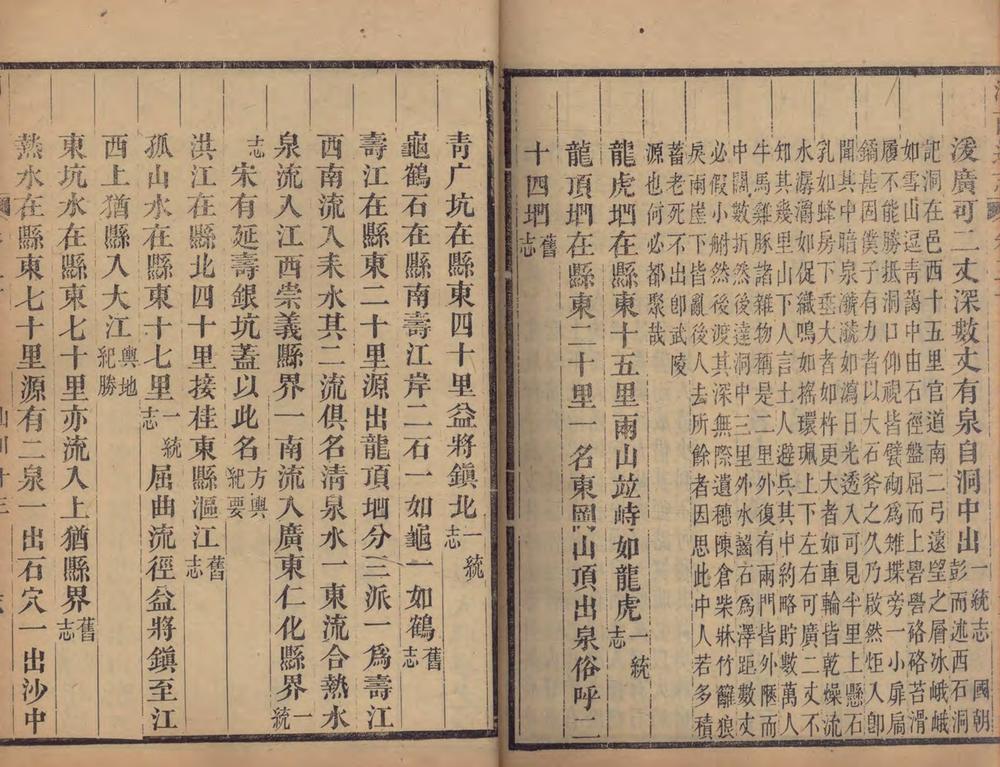 湲廣可二丈深數丈有泉自洞中出一統志 國朝彭而述西石洞
記洞在邑西十五里官道南二弓遠望之層冰峨峨
如雪山逗青藹中由石徑盤屈而上礐礐硌硌苔滑
履不能勝抵洞口仰視皆甓砌爲雉堞旁一小扉扃
鐍甚因僕子有力者以大石斧之久乃啟然炬入卽
聞其中暗泉漉漉如瀉日光透入可見半里上懸石
乳如蜂房下垂大者如杵更大者如車輪皆乾燥流
水潺潺如促織鳴如搖環珮上下左右可廣二丈不
知其幾里山下人言土人避兵其中約略貯數萬人
牛馬雞豚諸雜物稱是二里外復有兩門皆外匽而
中闊數折然後達洞中三里外水齧石爲澤距數丈
必假小艑然後渡其深無際遺穗陳倉柴牀竹籬狼
戾雨崖下皆亂後人去所餘者因思此中人若多積
蓄老死不出卽武陵
源也何必都聚哉
龍虎㘭在縣東十五里兩山竝峙如龍虎一統志
龍頂㘭在縣東二十里一名東岡山頂出泉俗呼二
十四㘭舊志
青广坑在縣東四十里益將鎭北一統志
龜鶴石在縣南壽江岸二石一如龜一如鶴舊志
壽江在縣東二十里源出龍頂㘭分三派一爲壽江
西南流入耒水其二流俱名清泉水一東流合熱水
泉流入江西崇義縣界一南流入廣東仁化縣界一統
志宋有延壽銀坑蓋以此名方輿紀要
洪江在縣北四十里接桂東縣漚江舊志
孤山水在縣東十七里一統志屈曲流徑益將鎭至江
西上猶縣入大江輿地紀勝
東坑水在縣東七十里亦流入上猶縣界舊志
熱水在縣東七十里源有二泉一出石穴一出沙中